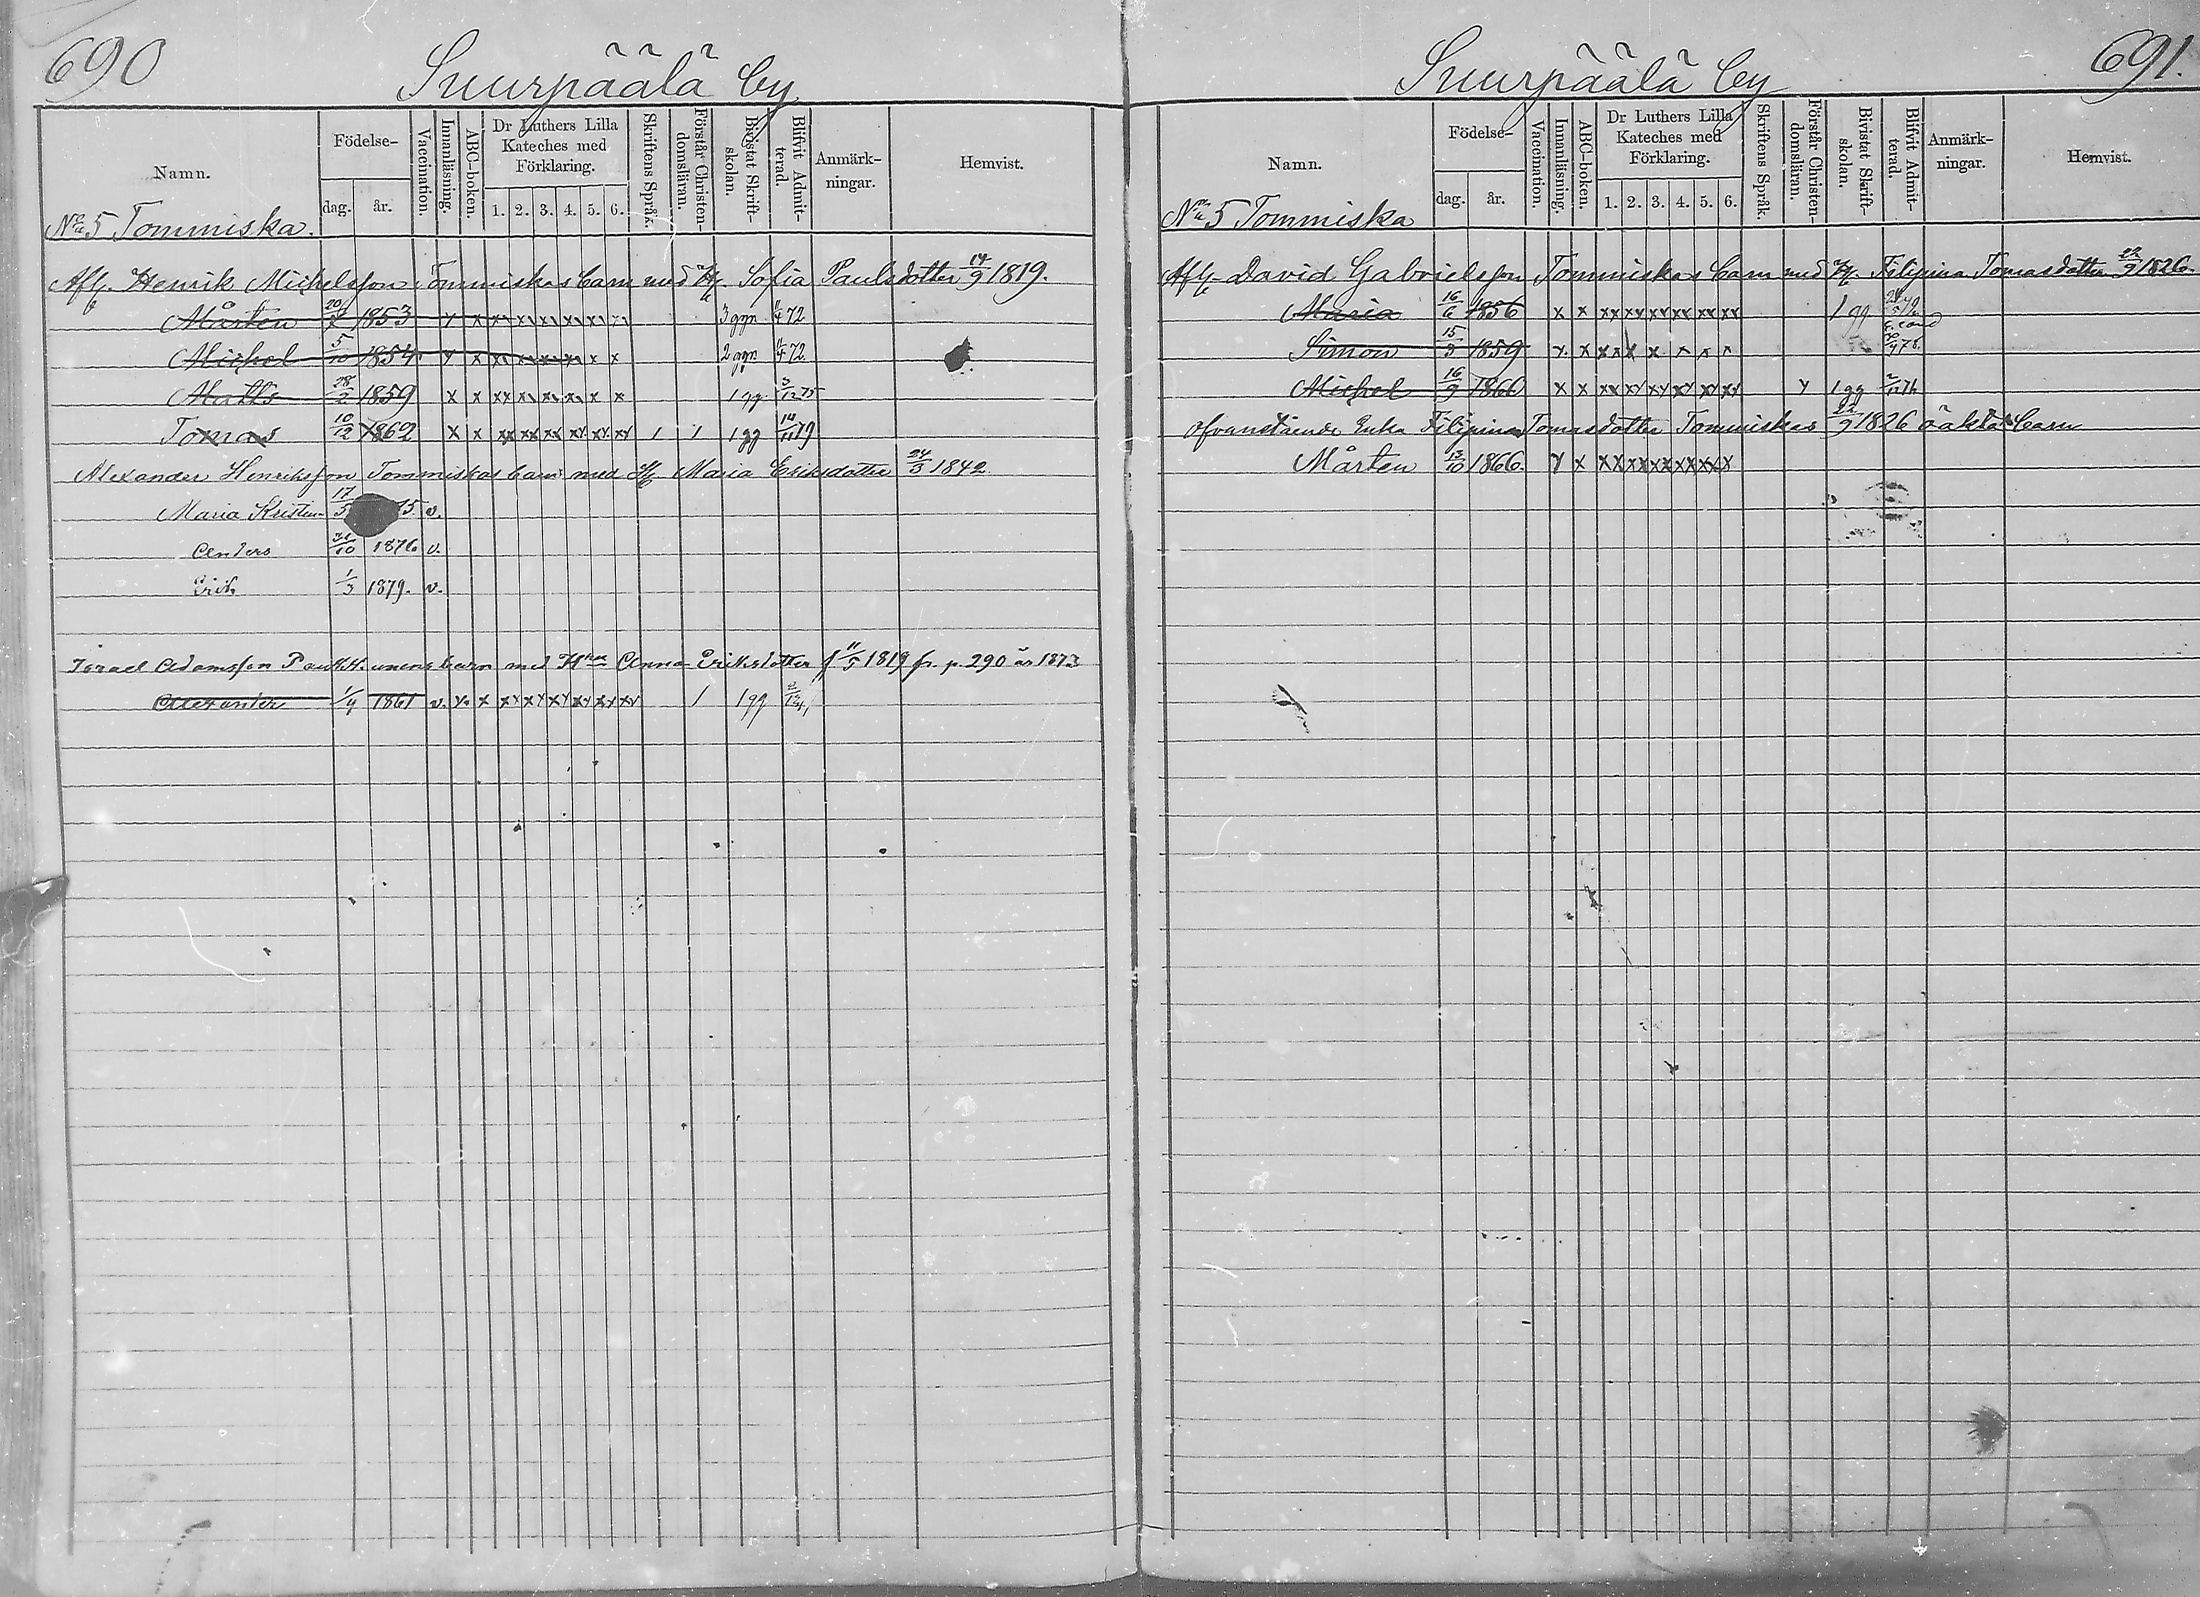 690
Suurpäälä by
Namn.
Födelse-
dag. år.
Vaccination.
Innanläsning.
ABC-boken.
Dr Luthers Lilla
Kateches med
Förklaring.
1. 2. 3. 4. 5. 6.
Skriftens Språk.
Förstår Christen-
domsläran.
Bivistat Skrift-
skolan.
Blifvit Admit-
terad.
Anmärk-
ningar.
Hemvist.
No 5 Tommiska.
Afl. Henrik Michelsson Tommiskas barn med H. Sofia Paulsdotter 14/9 1819.
Mårten 1853 x x xx xx xx xx x x 3 ggr 11/4 72
Michel 5/10 1854 x x xx xx xx xx x x 2 ggr 11/4 72.
Matts 28/2 1859 x x xx xx xx xx x x 1 gg. 3/12 75
Tomas 10/12 1862 x x xx xx xx xx xx xx 1 1 1 gg 14/11 79
Alexander Henriksson Tommiskas barn med H. Maria Eriksdotter 24/3 1842
Maria Kristina 17/5 75 v.
Anders 31/10 1876 v.
Erik 1/3 1879. v.
Israel Adamsson barn med Anna Eriksdotter f 11/5 1819 fr. p. 290 år 1873
Alexander 1/9 1861 v. x x xx xx xx xx xx xx 1 1 gg
691.
Suurpäälä by
Namn.
Födelse-
dag. år.
Vaccination.
Innanläsning.
ABC-boken.
Dr Luthers Lilla
Kateches med
Förklaring.
1. 2. 3. 4. 5. 6.
Skriftens Språk.
Förstår Christen-
domsläran.
Bivistat Skrift-
skolan.
Blifvit Admit-
terad.
Anmärk-
ningar.
Hemvist.
No 5 Tommiska
Afl. David Gabrielsson Tommiskas barn med H. Filipina Tomasdotter 22/9 1826.
Maria 16/6 1856 x x xx xx xx xx xx xx 1 gg
Simon 15/3 1859 x x x x x x x x x
Michel 16/9 1860 x x xx xx xx xx xx xx 1 gg
Ofvanstående Enka Filipina Tomasdotter Tommiskas 22/9 1826 oäkta barn
Mårten 13/10 1866. x x xx xx xx xx xx x